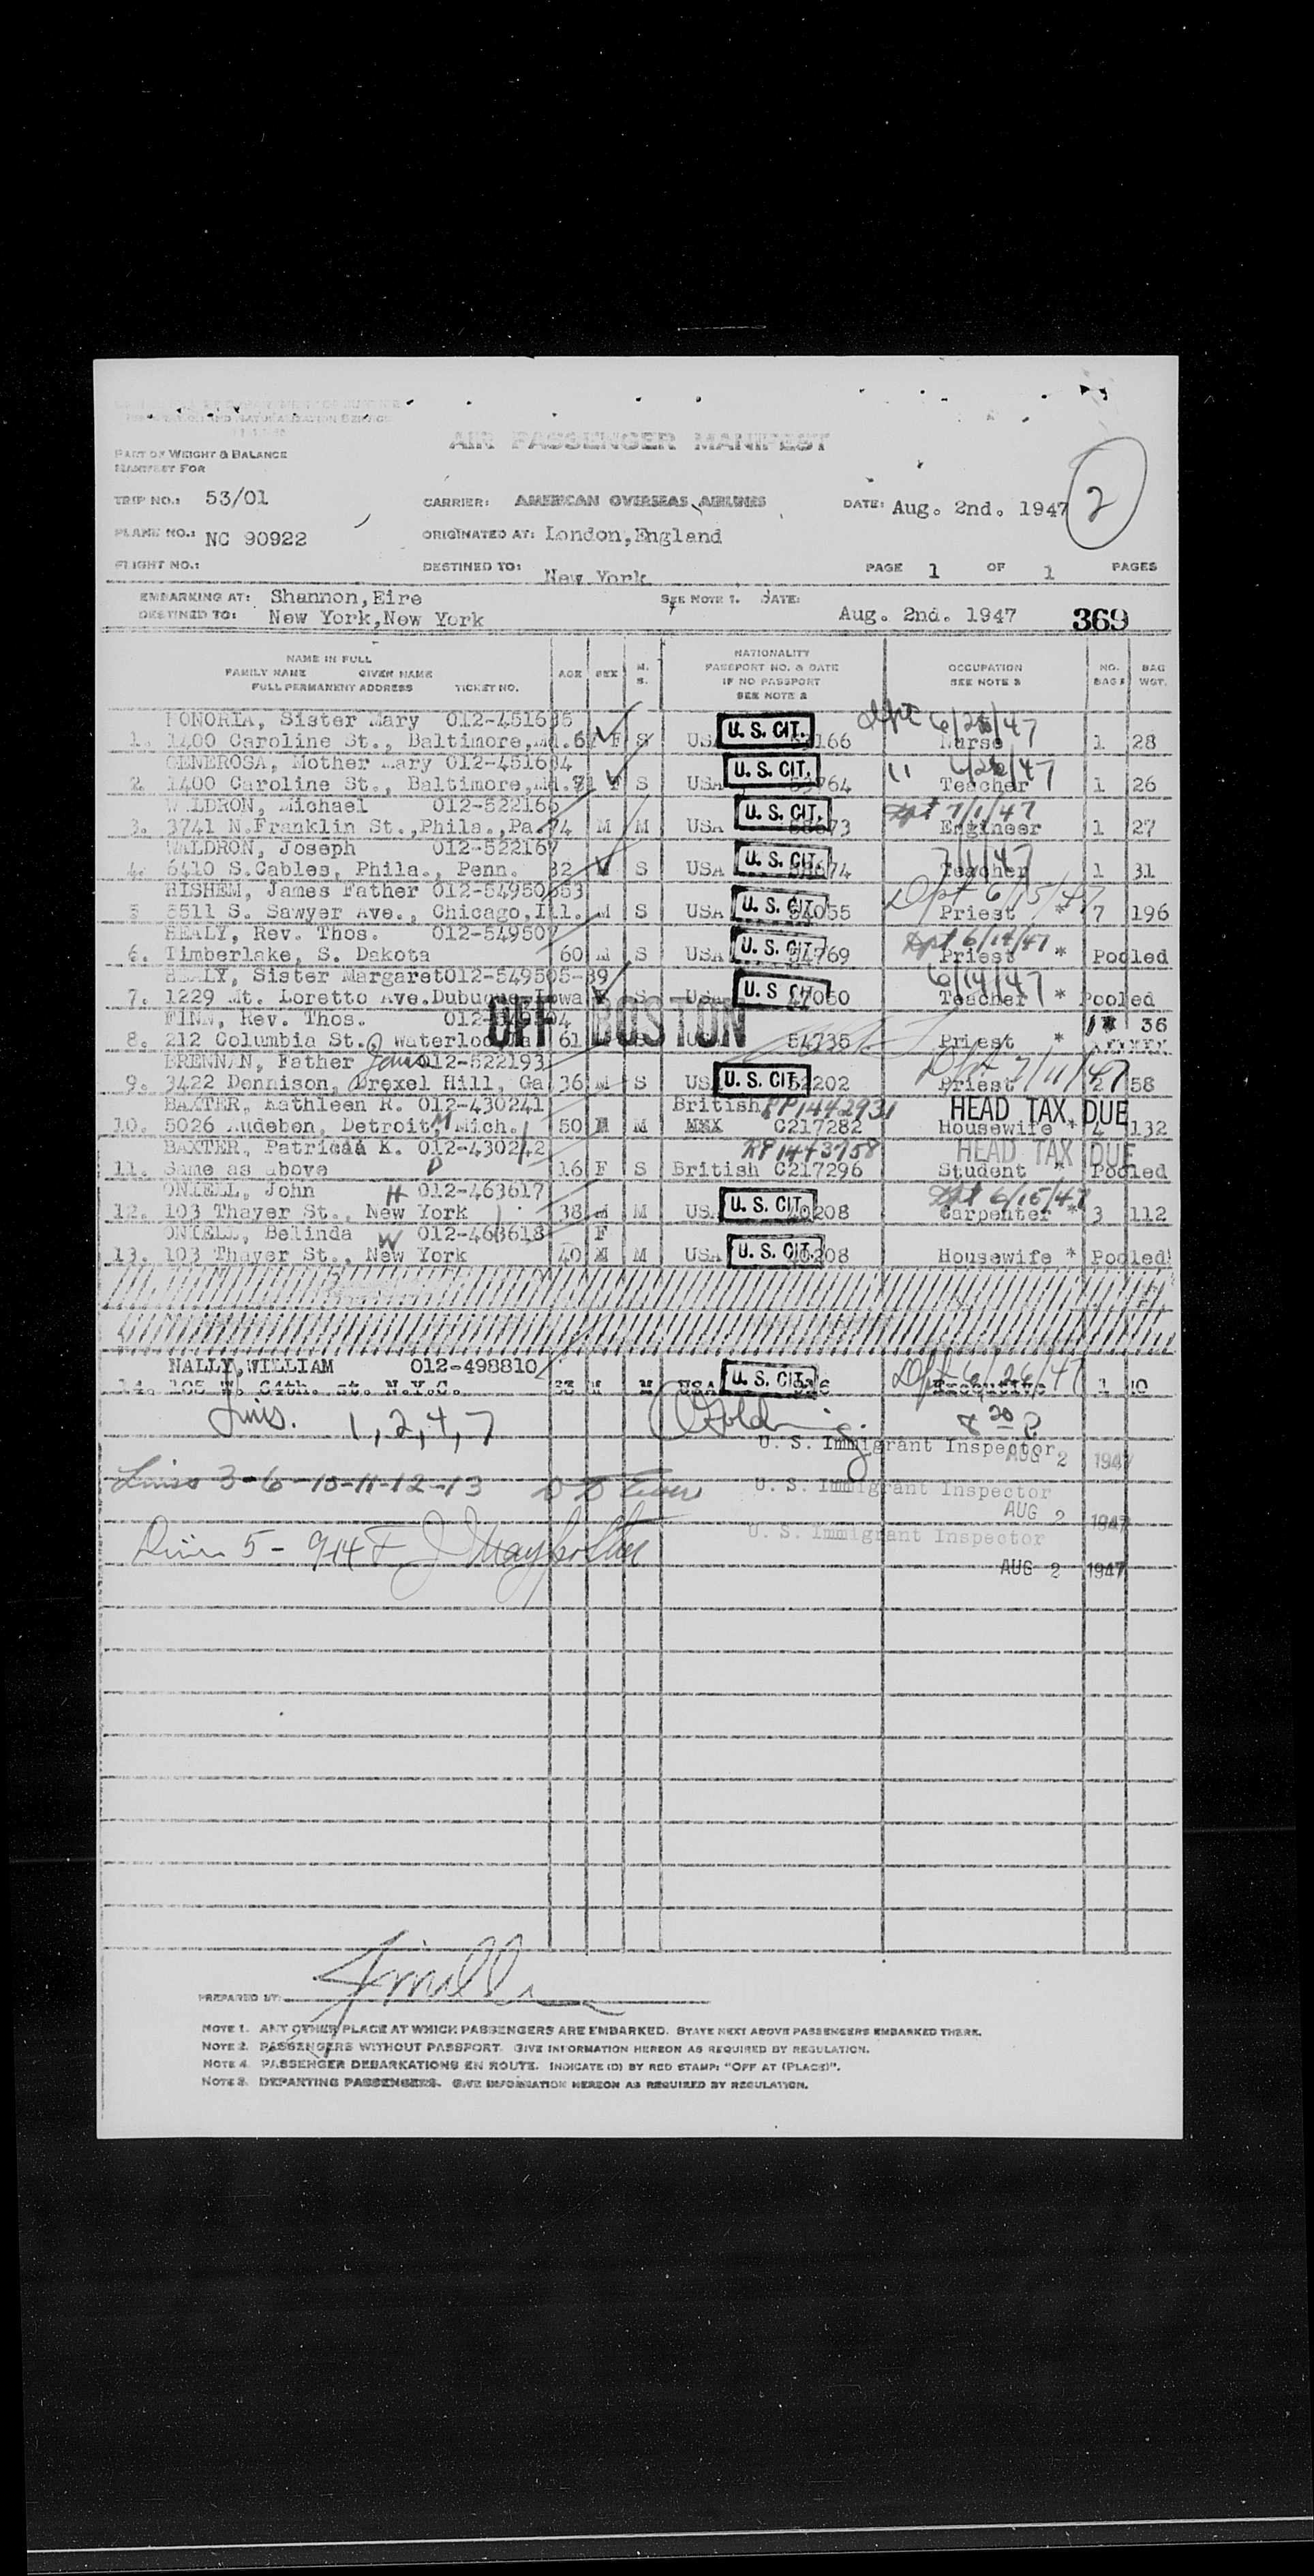 AIR PASSENGER MANIFEST
PART OF WEIGHT & BALANCE
MANIFEST FOR
TRIP NO.: 53/01 CARRIER: AMERICAN OVERSEAS AIRLINES DATE: Aug. 2nd. 1947 2
PLANE NO.: NC 90922 ORIGINATED AT: London,England
FLIGHT NO.: DESTINED TO: New York PAGE 1 OF 1 PAGES
EMBARKING AT: Shannon,Eire SEE NOTE 1. DATE:
DESTINED TO: New York,New York Aug. 2nd. 1947 369
NAME IN FULL
FAMILY NAME GIVEN NAME
FULL PERMANENT ADDRESS TICKET NO.
AGE SEX M. S.
NATIONALITY
PASSPORT NO. & DATE
IF NO PASSPORT
SEE NOTE 2
OCCUPATION
SEE NOTE 3
NO. BAGS
BAG WGT.
HONORIA, Sister Mary 012-451635 6/26/47
1. 1400 Caroline St., Baltimore,Md. F S U. S. CIT. 166 Nurse 1 28
GENEROSA, Mother Mary 012-451634 " 6/26/47
2. 1400 Caroline St., Baltimore,Md. S USA U. S. CIT. 764 Teacher 1 26
WALDRON, Michael 012-522166 Dpt 7/1/47
3. 3741 N.Franklin St.,Phila.,Pa. 74 M M USA U. S. CIT. 673 Engineer 1 27
WALDRON, Joseph 012-522167 7/1/47
4. 6410 S.Cables, Phila., Penn. 32 S USA U. S. CIT. 674 Teacher 1 31
HISHEM, James Father 012-54950 Dpt 6/15/47
5 5511 S. Sawyer Ave., Chicago,Ill. M S USA U. S. CIT. 54055 Priest * 7 196
HEALY, Rev. Thos. 012-549507 Dpt 6/14/47
6. Timberlake, S. Dakota 60 M S USA U. S. CIT. 769 Priest * Pooled
HEALY, Sister Margaret012-549505- 6/14/47
7. 1229 Mt. Loretto Ave.Dubuque,Iowa S USA U. S. CIT. 47060 Teacher * Pooled
FINN, Rev. Thos. 012- OFF BOSTON 1 36
8. 212 Columbia St. Waterloo 61 54735 Priest *
BRENNAN, Father 012-522193 Dpt 7/11/47
9. 3422 Dennison, Drexel Hill, Ga 36 M S US U. S. CIT. 52202 Priest 2 58
BAXTER, Kathleen R. 012-430241 British PP1442931 HEAD TAX DUE
10. 5026 Audeben, Detroit, Mich. M 50 M C217282 Housewife * 4 132
BAXTER, Patricia K. 012-430242 PP1443758 HEAD TAX DUE
11. Same as above D 16 F S British C217296 Student * Pooled
ONIELL, John H 012-463617 Dpt 6/15/47
12. 103 Thayer St., New York 38 M M US U. S. CIT. 208 Carpenter * 3 112
ONIELL, Belinda W 012-463618 F
13. 103 Thayer St., New York 40 M USA U. S. CIT. 208 Housewife * Pooled
NALLY,WILLIAM 012-498810 Dpt 6/26/47
14. 105 W. 84th. St. N.Y.C. 33 M M USA U. S. CIT. Executive 1 10
Lins. 1, 2, 4, 7
U. S. Immigrant Inspector AUG 2 1947
Lines 3-6-10-11-12-13 U. S. Immigrant Inspector
AUG 2 1947
U. S. Immigrant Inspector
AUG 2 1947
PREPARED BY:
NOTE 1. ANY OTHER PLACE AT WHICH PASSENGERS ARE EMBARKED. STATE NEXT ABOVE PASSENGERS EMBARKED THERE.
NOTE 2. PASSENGERS WITHOUT PASSPORT. GIVE INFORMATION HEREON AS REQUIRED BY REGULATION.
NOTE 4. PASSENGER DEBARKATIONS EN ROUTE. INDICATE (D) BY RED STAMP: "OFF AT (PLACE)".
NOTE 3. DEPARTING PASSENGERS. GIVE INFORMATION HEREON AS REQUIRED BY REGULATION.